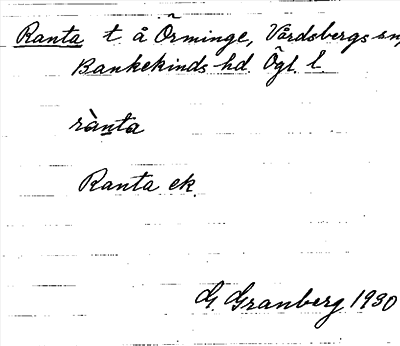 Ranta t. å Örminge, Vårdsbergs sn,
Bankekinds hd. Ögl. l.
rànta
Ranta ek.
G. Granberg 1930